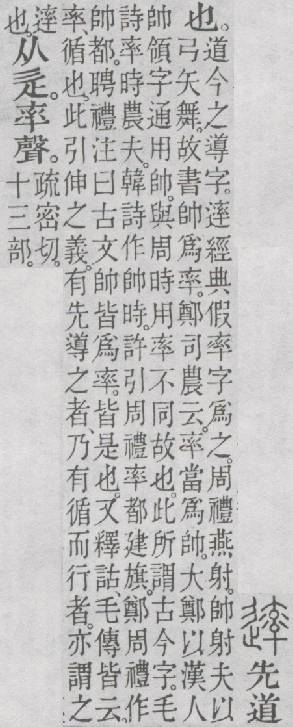 䢦先道
也。
道今之導字。䢦經典假率字爲之。周禮燕射。帥射夫以
弓矢舞。故書帥爲率。鄭司農云。率當爲帥。大鄭以漢人
帥領字通用帥。與周時用率不同故也。此所謂古今字。毛
詩率時農夫。韓詩作帥時。許引周禮率都建旗。鄭周禮作
帥都。聘禮注曰古文帥皆爲率。皆是也。又釋詁、毛傳皆云。
率、循也。此引伸之義。有先導之者、乃有循而行者。亦謂之
䢦
也。
从辵。率聲。
疏密切。
十三部。